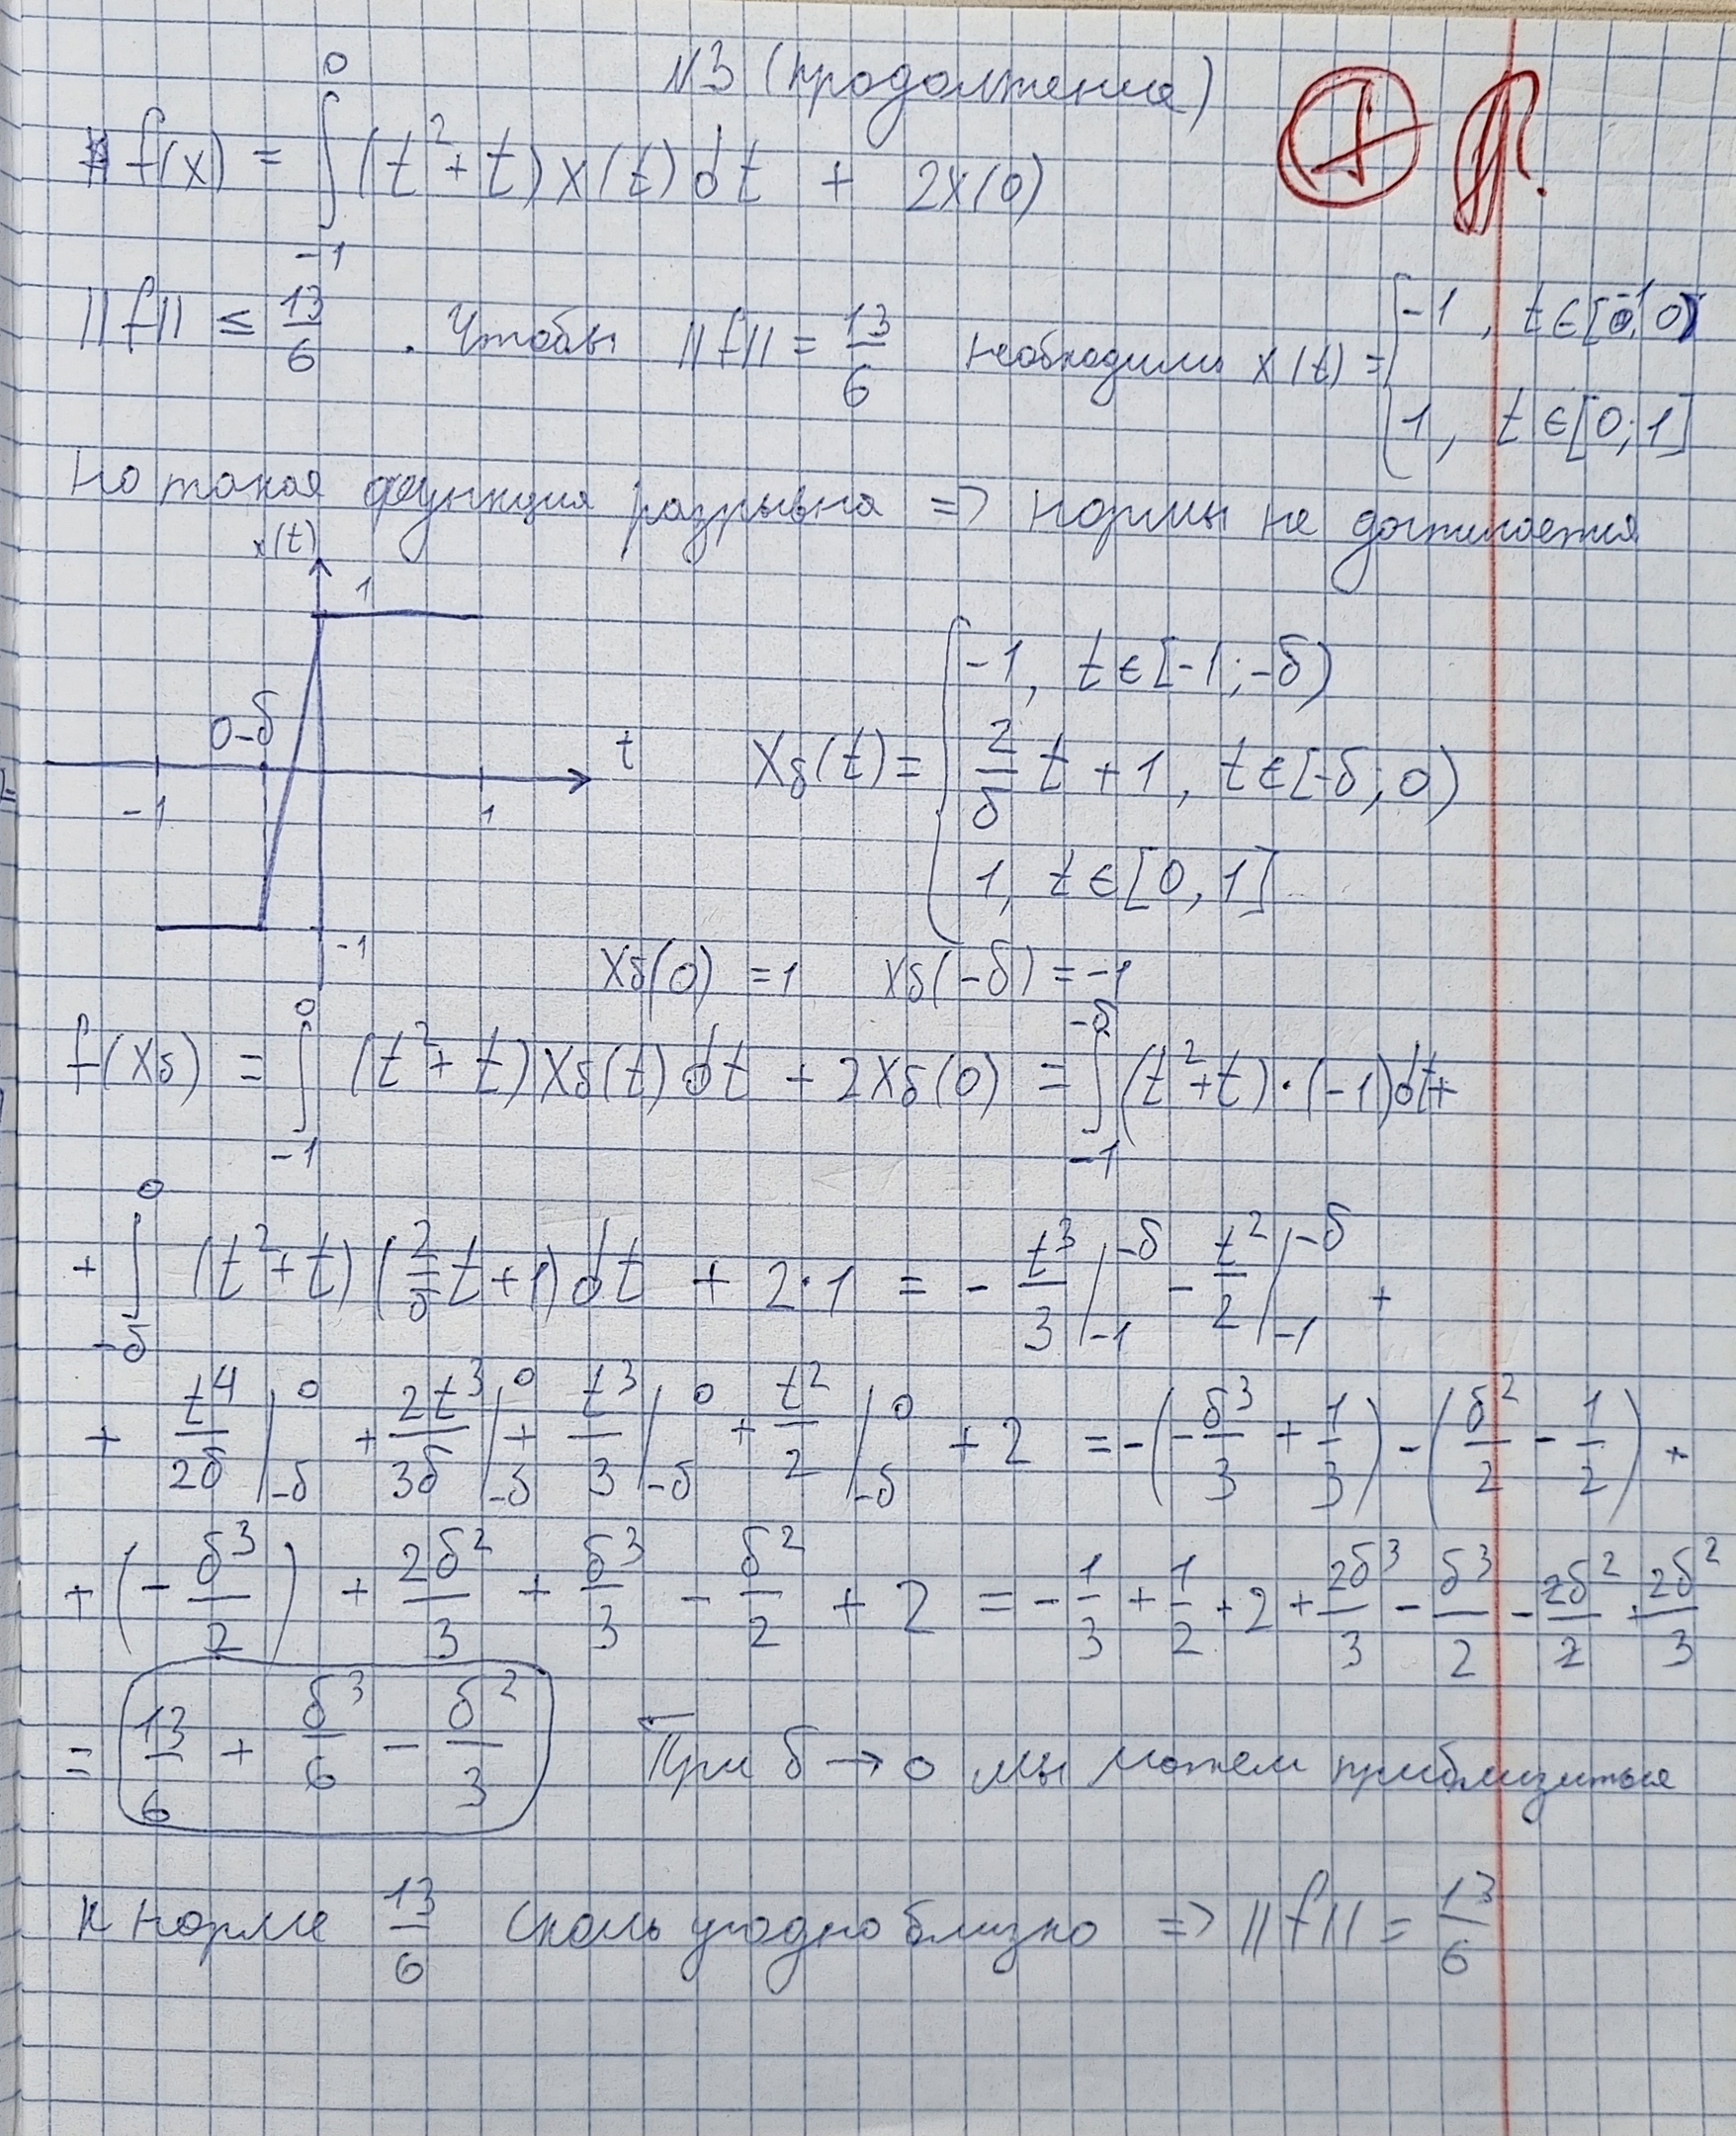 N3 (продолжение)
f(x) = ∫_{-1}^{0} (t² + t) x(t) dt + 2x(0)
||f|| ≤ 13/6 . Чтобы ||f|| = 13/6 необходимо x(t) = { -1, t ∈ [-1; 0)
1, t ∈ [0; 1]
Но такая функция разрывна => нормы не достигается
x(t)
1
0-δ
t
-1
1
-1
xδ(t) = { -1, t ∈ [-1; -δ)
2/δ t + 1, t ∈ [-δ; 0)
1, t ∈ [0, 1]
xδ(0) = 1 xδ(-δ) = -1
f(xδ) = ∫_{-1}^{0} (t² + t) xδ(t) dt + 2xδ(0) = ∫_{-1}^{-δ} (t² + t)·(-1) dt +
+ ∫_{-δ}^{0} (t² + t)(2/δ t + 1) dt + 2·1 = - t³/3 |_{-1}^{-δ} - t²/2 |_{-1}^{-δ} +
+ t⁴/2δ |_{-δ}^{0} + 2t³/3δ |_{-δ}^{0} + t³/3 |_{-δ}^{0} + t²/2 |_{-δ}^{0} + 2 = -(-δ³/3 + 1/3) - (δ²/2 - 1/2) +
+ (-δ³/2) + 2δ²/3 + δ³/3 - δ²/2 + 2 = -1/3 + 1/2 + 2 + 2δ³/3 - δ³/2 - 2δ²/2 + 2δ²/3
= 13/6 + δ³/6 - δ²/3 При δ → 0 мы можем приблизиться
к норме 13/6 сколь угодно близко => ||f|| = 13/6